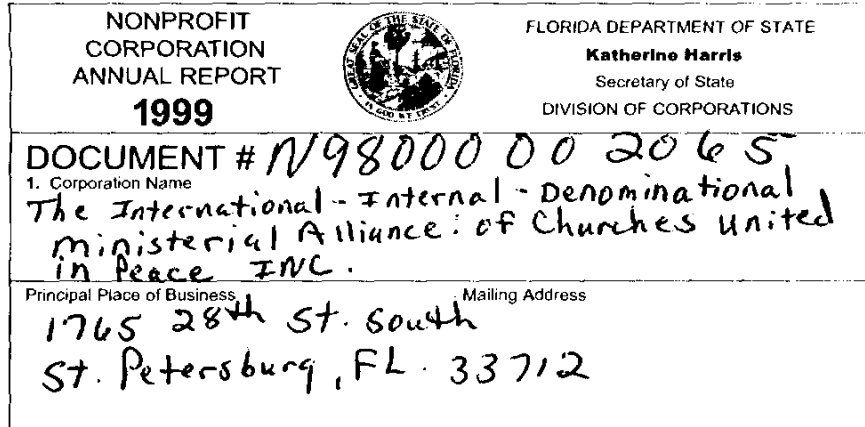 NONPROFIT
CORPORATION
ANNUAL REPORT
1999
GREAT SEAL OF THE STATE OF FLORIDA
IN GOD WE TRUST
FLORIDA DEPARTMENT OF STATE
Katherine Harris
Secretary of State
DIVISION OF CORPORATIONS
DOCUMENT # N98000 00 2065
1. Corporation Name
The International - Internal - Denominational
Ministerial Alliance: of Churches United
in Peace INC.
Principal Place of Business
Mailing Address
1765 28th St. South
St. Petersburg, FL. 33712